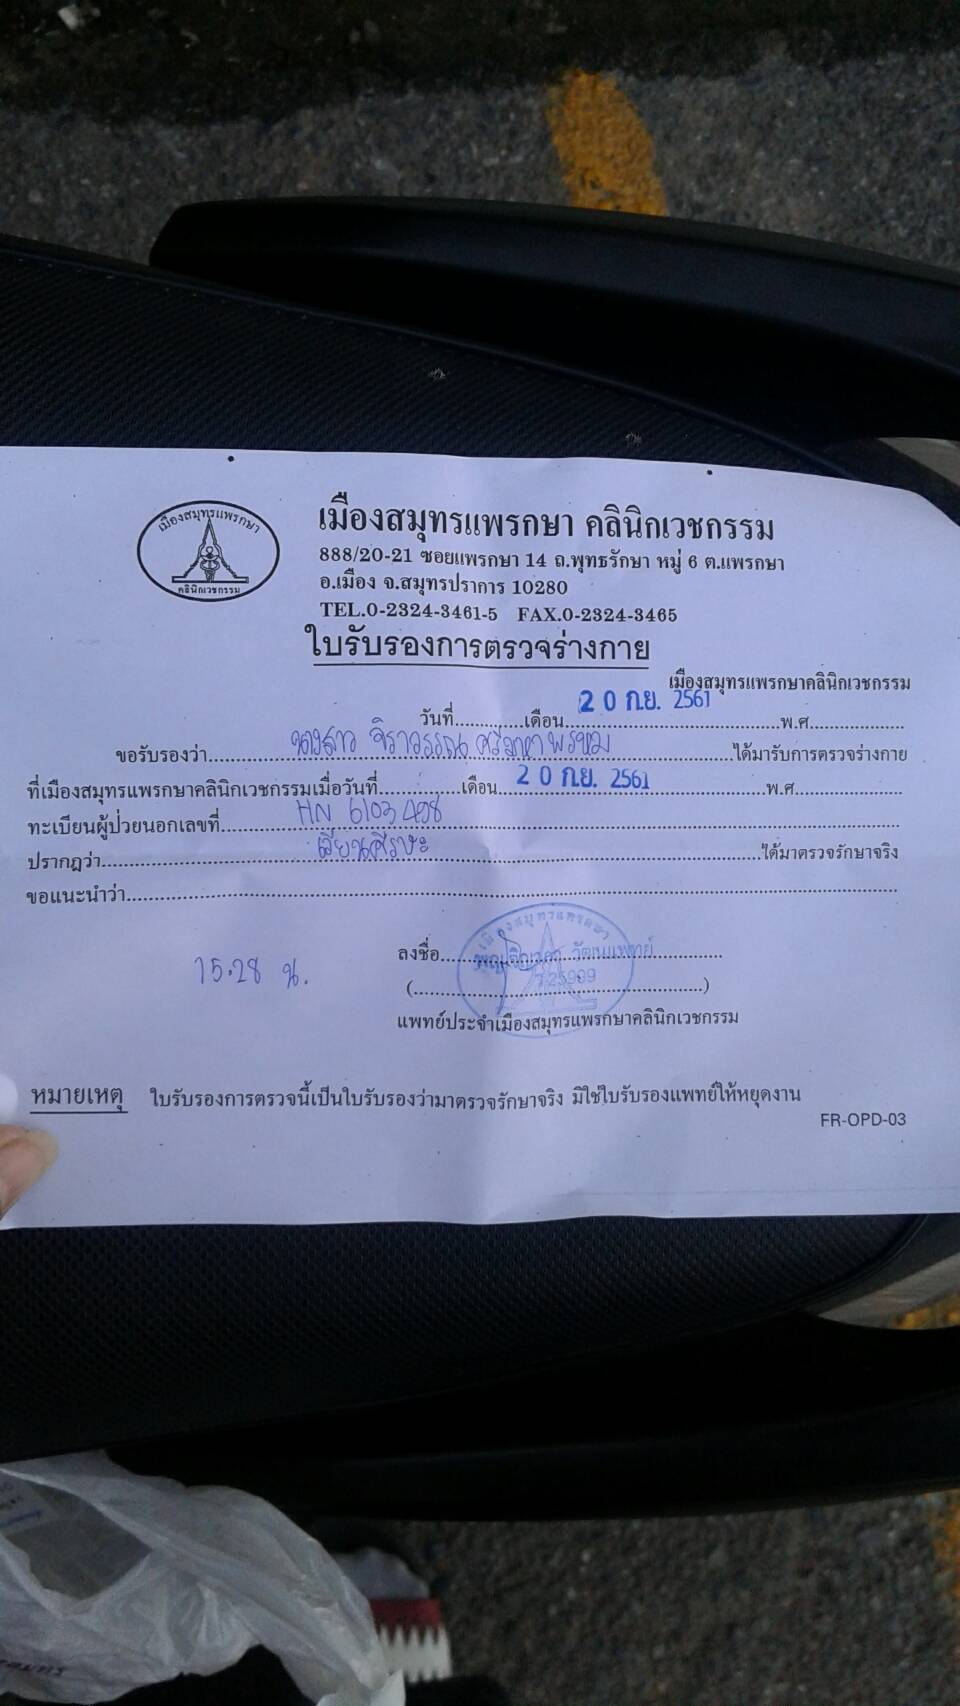 เมืองสมุทรแพรกษา
คลินิกเวชกรรม
เมืองสมุทรแพรกษา คลินิกเวชกรรม
888/20-21 ซอยแพรกษา 14 ถ.พุทธรักษา หมู่ 6 ต.แพรกษา
อ.เมือง จ.สมุทรปราการ 10280
TEL.0-2324-3461-5 FAX.0-2324-3465
ใบรับรองการตรวจร่างกาย
เมืองสมุทรแพรกษาคลินิกเวชกรรม
วันที่............เดือน 20 ก.ย. 2561 พ.ศ.................
ขอรับรองว่า นางสาว จิราวรรณ ศรีมหาพรหม ได้มารับการตรวจร่างกาย
ที่เมืองสมุทรแพรกษาคลินิกเวชกรรมเมื่อวันที่............เดือน 20 ก.ย. 2561 พ.ศ.................
ทะเบียนผู้ป่วยนอกเลขที่ HN 6103498
ปรากฏว่า เวียนศีรษะ ได้มาตรวจรักษาจริง
ขอแนะนำว่า
15.28 น.
ลงชื่อ วัฒนแพทย์
เมืองสมุทรแพรกษา
(..........................................)
แพทย์ประจำเมืองสมุทรแพรกษาคลินิกเวชกรรม
หมายเหตุ ใบรับรองการตรวจนี้เป็นใบรับรองว่ามาตรวจรักษาจริง มิใช่ใบรับรองแพทย์ให้หยุดงาน
FR-OPD-03